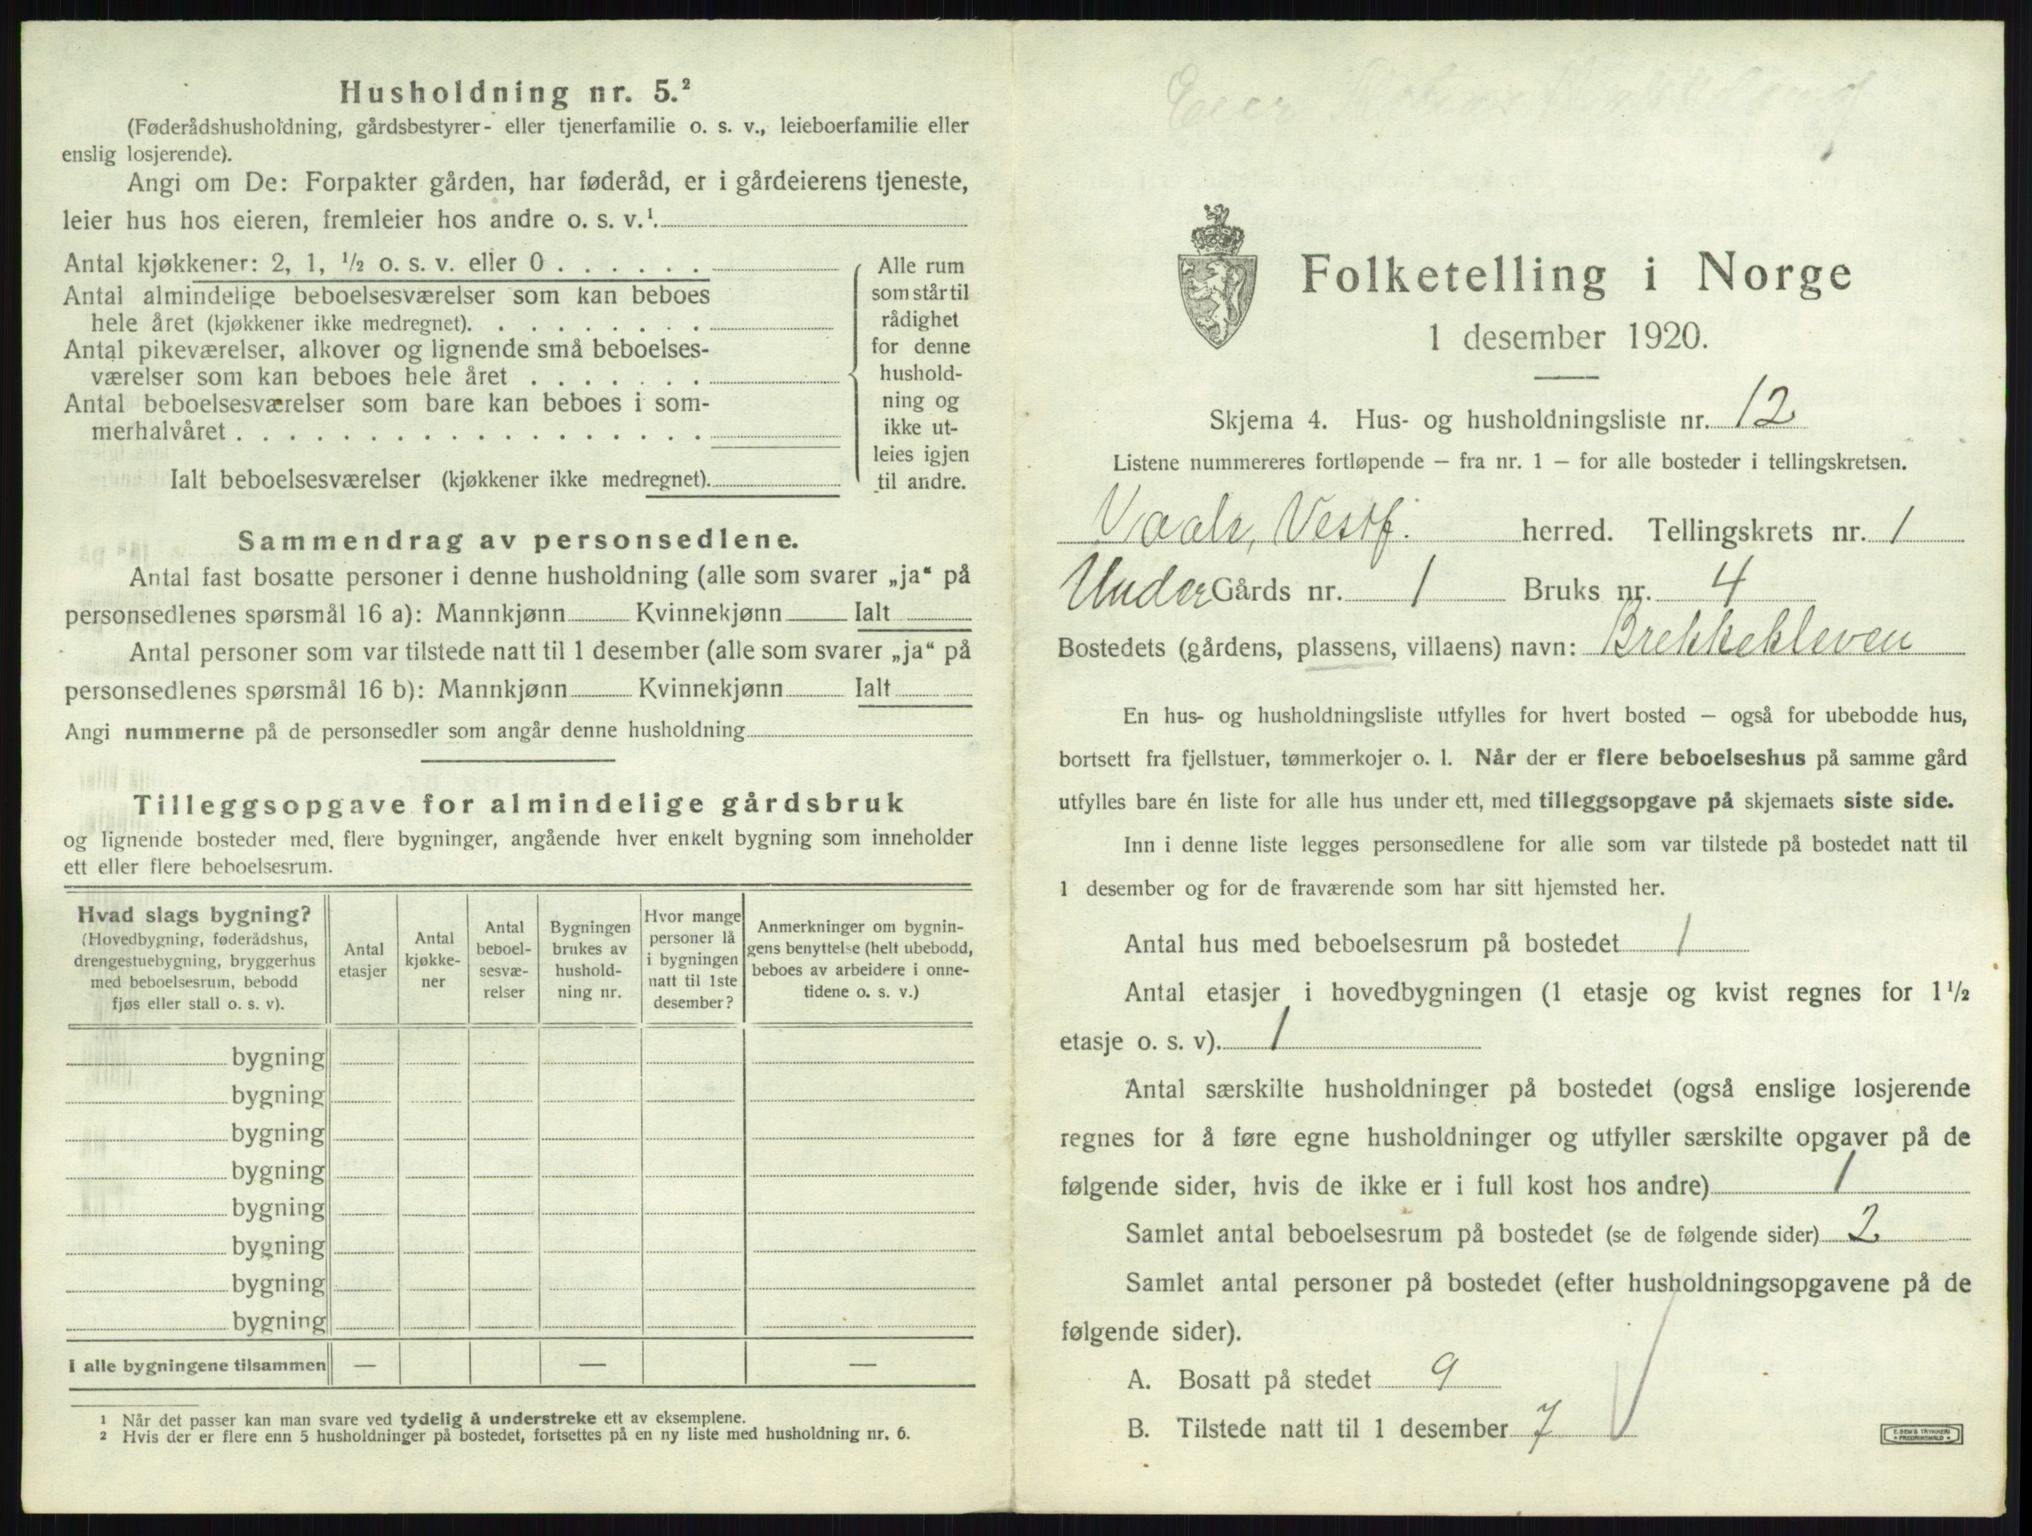 Husholdning nr. 5.²
(Føderådshusholdning, gårdsbestyrer- eller tjenerfamilie o. s. v., leieboerfamilie eller
enslig losjerende).
Angi om De: Forpakter gården, har føderåd, er i gårdeierens tjeneste,
leier hus hos eieren, fremleier hos andre o. s. v.¹
Antal kjøkkener: 2, 1, ½ o. s. v. eller 0 . . . . . .
Antal almindelige beboelsesværelser som kan beboes
hele året (kjøkkener ikke medregnet). . . . . . . . .
Antal pikeværelser, alkover og lignende små beboelses-
værelser som kan beboes hele året . . . . . . .
Antal beboelsesværelser som bare kan beboes i som-
merhalvåret . . . . . . . . . . . . . . . . . .
Ialt beboelsesværelser (kjøkkener ikke medregnet).
Alle rum
som står til
rådighet
for denne
hushold-
ning og
ikke ut-
leies igjen
til andre.
Sammendrag av personsedlene.
Antal fast bosatte personer i denne husholdning (alle som svarer „ja“ på
personsedlenes spørsmål 16 a): Mannkjønn Kvinnekjønn Ialt
Antal personer som var tilstede natt til 1 desember (alle som svarer „ja“ på
personsedlenes spørsmål 16 b): Mannkjønn Kvinnekjønn Ialt
Angi nummerne på de personsedler som angår denne husholdning
Tilleggsopgave for almindelige gårdsbruk
og lignende bosteder med flere bygninger, angående hver enkelt bygning som inneholder
ett eller flere beboelsesrum.
Hvad slags bygning?
(Hovedbygning, føderådshus,
drengestuebygning, bryggerhus
med beboelsesrum, bebodd
fjøs eller stall o. s. v).
Antal
etasjer
Antal
kjøkke-
ner
Antal
beboel-
sesvæ-
relser
Bygningen
brukes av
hushold-
ning nr.
Hvor mange
personer lå
i bygningen
natt til 1ste
desember?
Anmerkninger om bygnin-
gens benyttelse (helt ubebodd,
beboes av arbeidere i onne-
tidene o. s. v.)
bygning
bygning
bygning
bygning
bygning
bygning
bygning
bygning
I alle bygningene tilsammen — — —
¹ Når det passer kan man svare ved tydelig å understreke ett av eksemplene.
² Hvis der er flere enn 5 husholdninger på bostedet, fortsettes på en ny liste med husholdning nr. 6.
Eier
Folketelling i Norge
1 desember 1920.
Skjema 4. Hus- og husholdningsliste nr. 12
Listene nummereres fortløpende – fra nr. 1 – for alle bosteder i tellingskretsen.
Vaale, Vestf. herred. Tellingskrets nr. 1
Under Gårds nr. 1 Bruks nr. 4
Bostedets (gårdens, plassens, villaens) navn: Brekkekleven
En hus- og husholdningsliste utfylles for hvert bosted – også for ubebodde hus,
bortsett fra fjellstuer, tømmerkojer o. l. Når der er flere beboelseshus på samme gård
utfylles bare én liste for alle hus under ett, med tilleggsopgave på skjemaets siste side.
Inn i denne liste legges personsedlene for alle som var tilstede på bostedet natt til
1 desember og for de fraværende som har sitt hjemsted her.
Antal hus med beboelsesrum på bostedet 1
Antal etasjer i hovedbygningen (1 etasje og kvist regnes for 1½
etasje o. s. v). 1
Antal særskilte husholdninger på bostedet (også enslige losjerende
regnes for å føre egne husholdninger og utfyller særskilte opgaver på de
følgende sider, hvis de ikke er i full kost hos andre) 1
Samlet antal beboelsesrum på bostedet (se de følgende sider) 2
Samlet antal personer på bostedet (efter husholdningsopgavene på de
følgende sider).
A. Bosatt på stedet 9
B. Tilstede natt til 1 desember 7
E. SEM'S TRYKKERI
FREDRIKSHALD